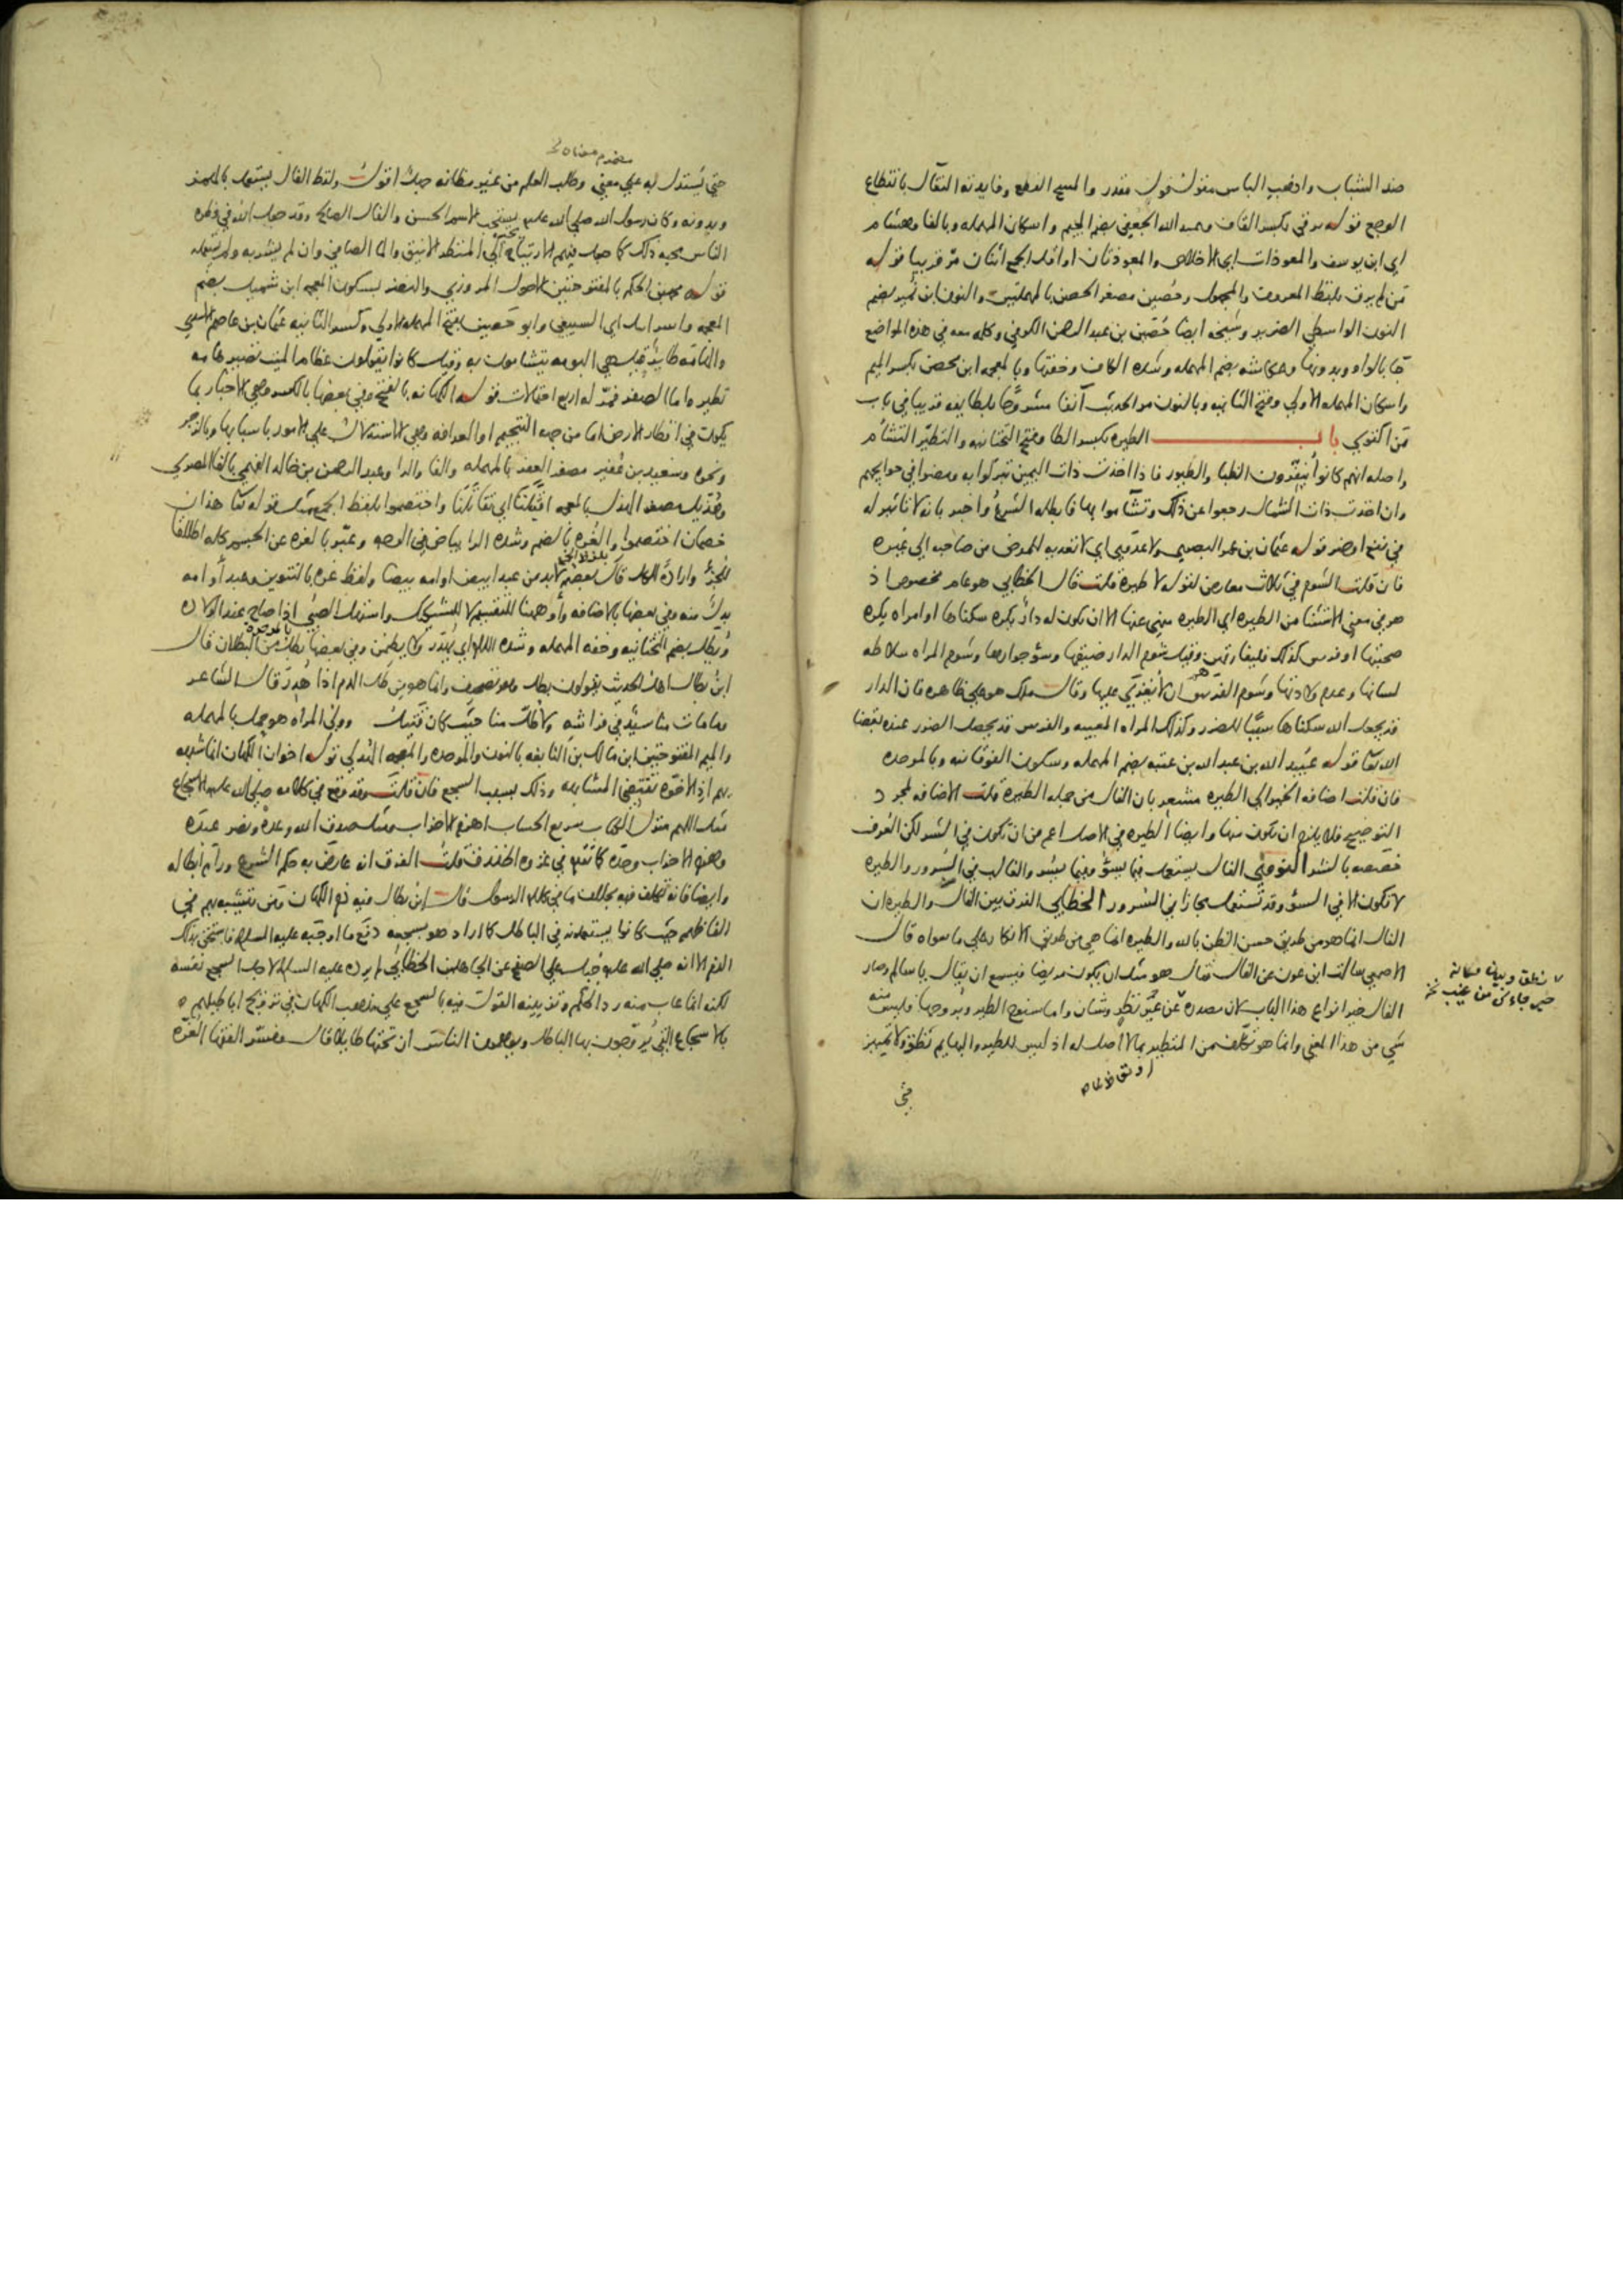 ضد الشباب واذهب الباس مقول نقول مقدر والمسح الدفع وفايدته التفال بانقطاع
الوجع قوله يرقي بكسر القاف وعبد الله الجعفي بضم الجيم واسكان المهمله وبالفا وهشام
اي ابن يوسف والمعوذات اي الاخلاص والمعوذتان او اقل الجمع اثنان مر قريبا قوله
من لم يرق بلفظ المعروف والمجهول وحصين مصغر الحصن بالمهملتين والنون ابن نمير بضم
النون الواسطي الضرير وشيخه ايضا حصين بن عبد الرحمن الكوفي وكلمه معه في هذه المواضع
جا بالواو وبدونها وعكاشه بضم المهمله وشده الكاف وخفتها وبالمعجمه ابن محصن بكسر الميم
واسكان المهمله الاولي وفتح الثانيه وبالنون مر الحديث آنفا مشروحا بلطايفه قريبا في باب
من اكتوي باب الطيره بكسر الطا وفتح التحتانيه والتطير التشأم
واصله انهم كانوا ينفرون الظبا والطيور فاذا اخذت ذات اليمين تبركوا به ومضوا في حوايجهم
وان اخذت ذات الشمال رجعوا عن ذلك وتشآموا بها فابطله الشرع واخبر بانه لا تاثير له
في نفع او ضر قوله عثمان بن عمر البصري ولا عدوي اي لا تعديه للمرض من صاحبه الي غيره
فان قلت الشوم في ثلاث معارض لقوله لا طيره قلت قال الخطابي هو عام مخصوص اذ
هو في معني الاستثنا من الطيره اي الطيره منهي عنها الا ان يكون له دار يكره سكناها او امراه يكره
صحبتها او فرس كذلك فليفارقهن وقيل شوم الدار ضيقها وسؤ جوارها وشوم المراه سلاطه
لسانها وعدم ولادتها وشوم الفرس ان لا يغزي عليها وقال ملك هو علي ظاهره فان الدار
قد يجعل الله سكناها سببا للضرر وكذلك المراه المعينه والفرس قد يحصل الضرر عنده بقضا
الله تعا قوله عبيد الله بن عبد الله بن عتبه بضم المهمله وسكون الفوقانيه وبالموحده
فان قلت اضافه الخير الي الطيره مشعر بان الفال من جمله الطيره قلت الاضافه لمجرد
التوضيح فلا يلزم ان يكون منها وايضا الطيره في الاصل اعم من ان تكون في الشر لكن العرف
خصصه بالشر النووي الفال يستعمل فيما يسؤ وفيما يسر والغالب في السرور والطيره
لا تكون الا في السؤ وقد تستعمل مجازا في السرور الخطابي الفرق بين الفال والطيره ان
الفال انما هو من طريق حسن الظن بالله والطيره انما هي من طريق الاتكا علي ما سواه قال
الاصمعي سالت ابن عون عن الفال فقال هو مثل ان يكون مريضا فيسمع ان يقال يا سالم وصار
الفال خير انواع هذا الباب لان مصدره عن نطق وبيان واما سنوح الطير وبروحها فليس منه
شي من هذا المعني وانما هو تكلف من المتطير بما لا اصل له اذ ليس للطير والبهايم نطق ولا تمييز
في
حتي يستدل به علي معني وطلب العلم من غير مظانه جهل اقول ولفظ الفال يستعمل بالهمز
وبدونه وكان رسول الله صلي الله عليه يستحب الاسم الحسن والفال الصالح وقد جعل الله في فطره
الناس محبه ذلك كما جعل فيهم الارتياح الي المنظر الانيق والما الصافي وان لم يشربه ولم يستعمله
قوله محمد بن الحكم بالمفتوحتين الاحول المروزي والنضر بسكون المعجمه ابن شميل بضم
المعجمه واسرايل اي السبيعي وابو حصين بفتح المهمله الاولي وكسر الثانيه عثمان بن عاصم
والهامه طاير قيل هي البومه يتشامون به وقيل كانوا يقولون عظام الميت تصير هامه
تطير واما الصفر فمر له اربع احتمالات قوله الكهانه بالفتح وفي بعضها بالكسر وهي الاخبار بما
يكون في اقطار الارض اما من جهه التنجيم او العرافه وهي الاستدلال علي الامور باسبابها وبالزجر
ونحوه وسعيد بن عفير مصغر العفر بالمهمله والفا والرا وعبد الرحمن بن خالد الفهمي بالفا المصري
وهذيل مصغر الهذل بالمعجمه اقتتلتا اي تقاتلتا واختصموا بلفظ الجمع مثل قوله تعا هذان
خصمان اختصموا والغره بالضم وشده الرا بياض في الوجه وعبر بالغره عن الجسم كله اطلاقا
للجزء واراده الكل قال بعضهم لابد من عبد ابيض او امه بيضا ولفظ غره بالتنوين وعبد او امه
بدل منه وفي بعضها بالاضافه وأو ههنا للتقسيم لا للتشكيك واستهل الصبي اذا صاح عند الولاده
ويطل بضم التحتانيه وخفه المهمله وشده اللام اي يهدر ولا يضمن وفي بعضها بطل من البطلان قال
ابن بطال اهل الحديث يقولون بطل وهو تصحيف وانما هو من طل الدم اذا هدر قال الشاعر
وما مات منا سيد في فراشه ولا طل منا حيث كان قتيل وولي المراه هو حمل بالمهمله
والميم المفتوحتين ابن مالك بن النابغه بالنون والموحده والمعجمه الهذلي قوله اخوان الكهان انما شبهه
بهم اذ الاخوه تقتضي المشابهه وذلك بسبب السجع فان قلت وقد وقع في كلامه صلي الله عليه الاسجاع
مثل اللهم منزل الكتاب سريع الحساب اهزم الاحزاب ومثل صدق الله وعده ونصر عبده
وهزم الاحزاب وحده كما تقدم في غزوه الخندق قلت الفرق انه عارض به حكم الشرع ورام ابطاله
وايضا فانه تكلف فيه بخلاف ما في كلام الرسول قال ابن بطال فيه ذم الكهان ومن تشبه بهم في
الفاظهم حيث كانوا يستعملونه في الباطل كما اراد هو بسجعه دفع ما اوجبه عليه السلام فاستحق بذلك
الذم الا انه صلي الله عليه جبل علي الصفح عن الجاهلين الخطابي لم يرده عليه السلام لاجل السجع نفسه
لكنه انما عاب منه رد الحكم وتزيينه القول فيه بالسجع علي مذهب الكهان في ترويج اباطيلهم
بالاسجاع التي يروجون بها الباطل ويوهمون الناس ان تحتها طايلا قال وفسر الفقها الغره